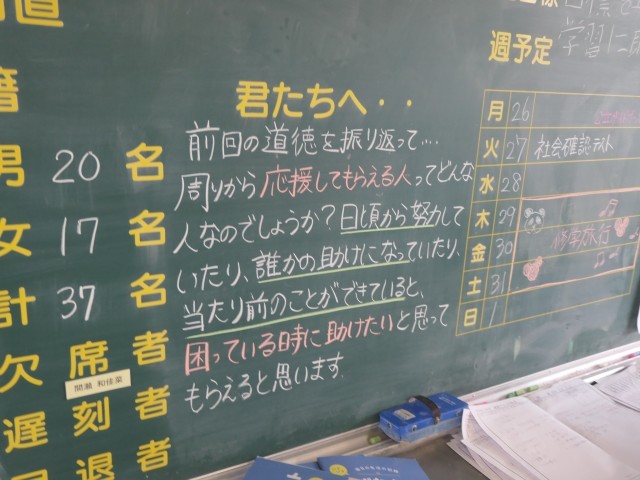 籍
男 20 名
女 17 名
計 37 名
欠席者
間瀬 和佳菜
遅刻者
退者
君たちへ・・
前回の道徳を振り返って‥‥
周りから応援してもらえる人ってどんな
人なのでしょうか?日頃から努力して
いたり、誰かの助けになっていたり、
当たり前のことができていると、
困っている時に助けたいと思って
もらえると思います.
週予定
学習に
月 26
火 27 社会確認テスト
水 28
木 29
金 30 修学旅行
土 31
日 1